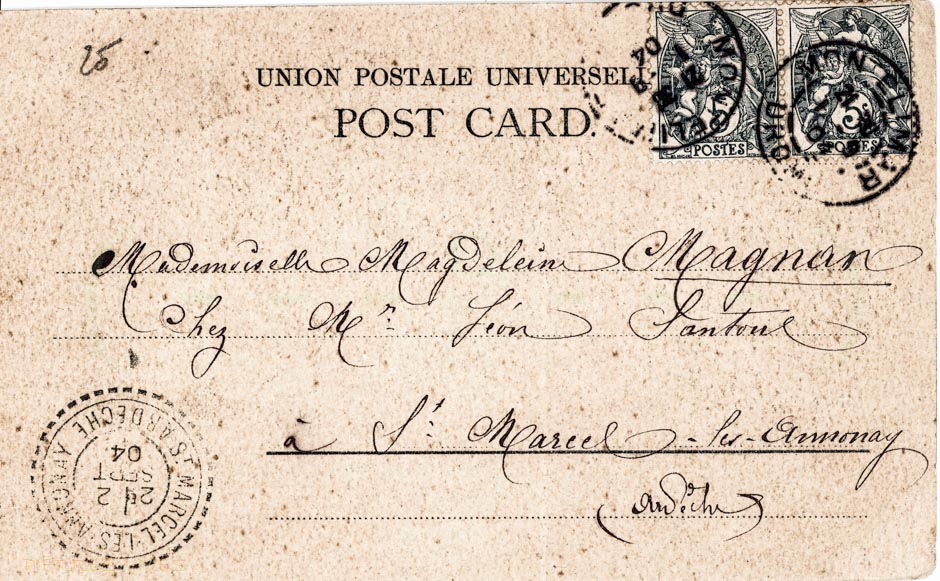 25
UNION POSTALE UNIVERSELL
POST CARD.
POSTES
POSTES
5
MONTELIMAR
04
Mademoiselle Magdeleine Magnan
Chez Mr. Léon Santoul
à St. Marcel-les-Annonay
(Ardèche)
ST MARCEL-LES-ANNONAY
ARDECHE
2
SEPT
04